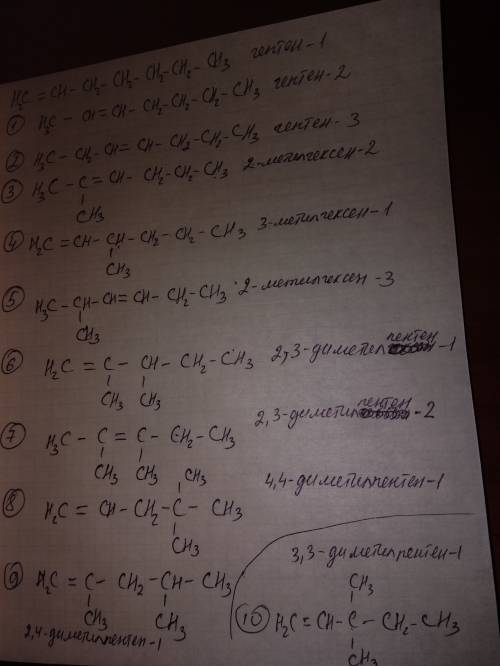 H₂C = CH - CH₂ - CH₂ - CH₂ - CH₂ - CH₃ гептен-1
① H₃C - CH = CH - CH₂ - CH₂ - CH₂ - CH₃ гептен-2
② H₃C - CH₂ - CH = CH - CH₂ - CH₂ - CH₃ гептен-3
③ H₃C - C = CH - CH₂ - CH₂ - CH₃ 2-метилгексен-2
CH₃
④ H₂C = CH - CH - CH₂ - CH₂ - CH₃ 3-метилгексен-1
CH₃
⑤ H₃C - CH - CH = CH - CH₂ - CH₃ 2-метилгексен-3
CH₃
⑥ H₂C = C - CH - CH₂ - CH₃ 2,3-диметилпентен-1
CH₃ CH₃
⑦ H₃C - C = C - CH₂ - CH₃ 2,3-диметилпентен-2
CH₃ CH₃
CH₃
⑧ H₂C = CH - CH₂ - C - CH₃ 4,4-диметилпентен-1
CH₃
⑨ H₂C = C - CH₂ - CH - CH₃
CH₃ CH₃
2,4-диметилпентен-1
3,3-диметилпентен-1
CH₃
⑩ H₂C = CH - C - CH₂ - CH₃
CH₃